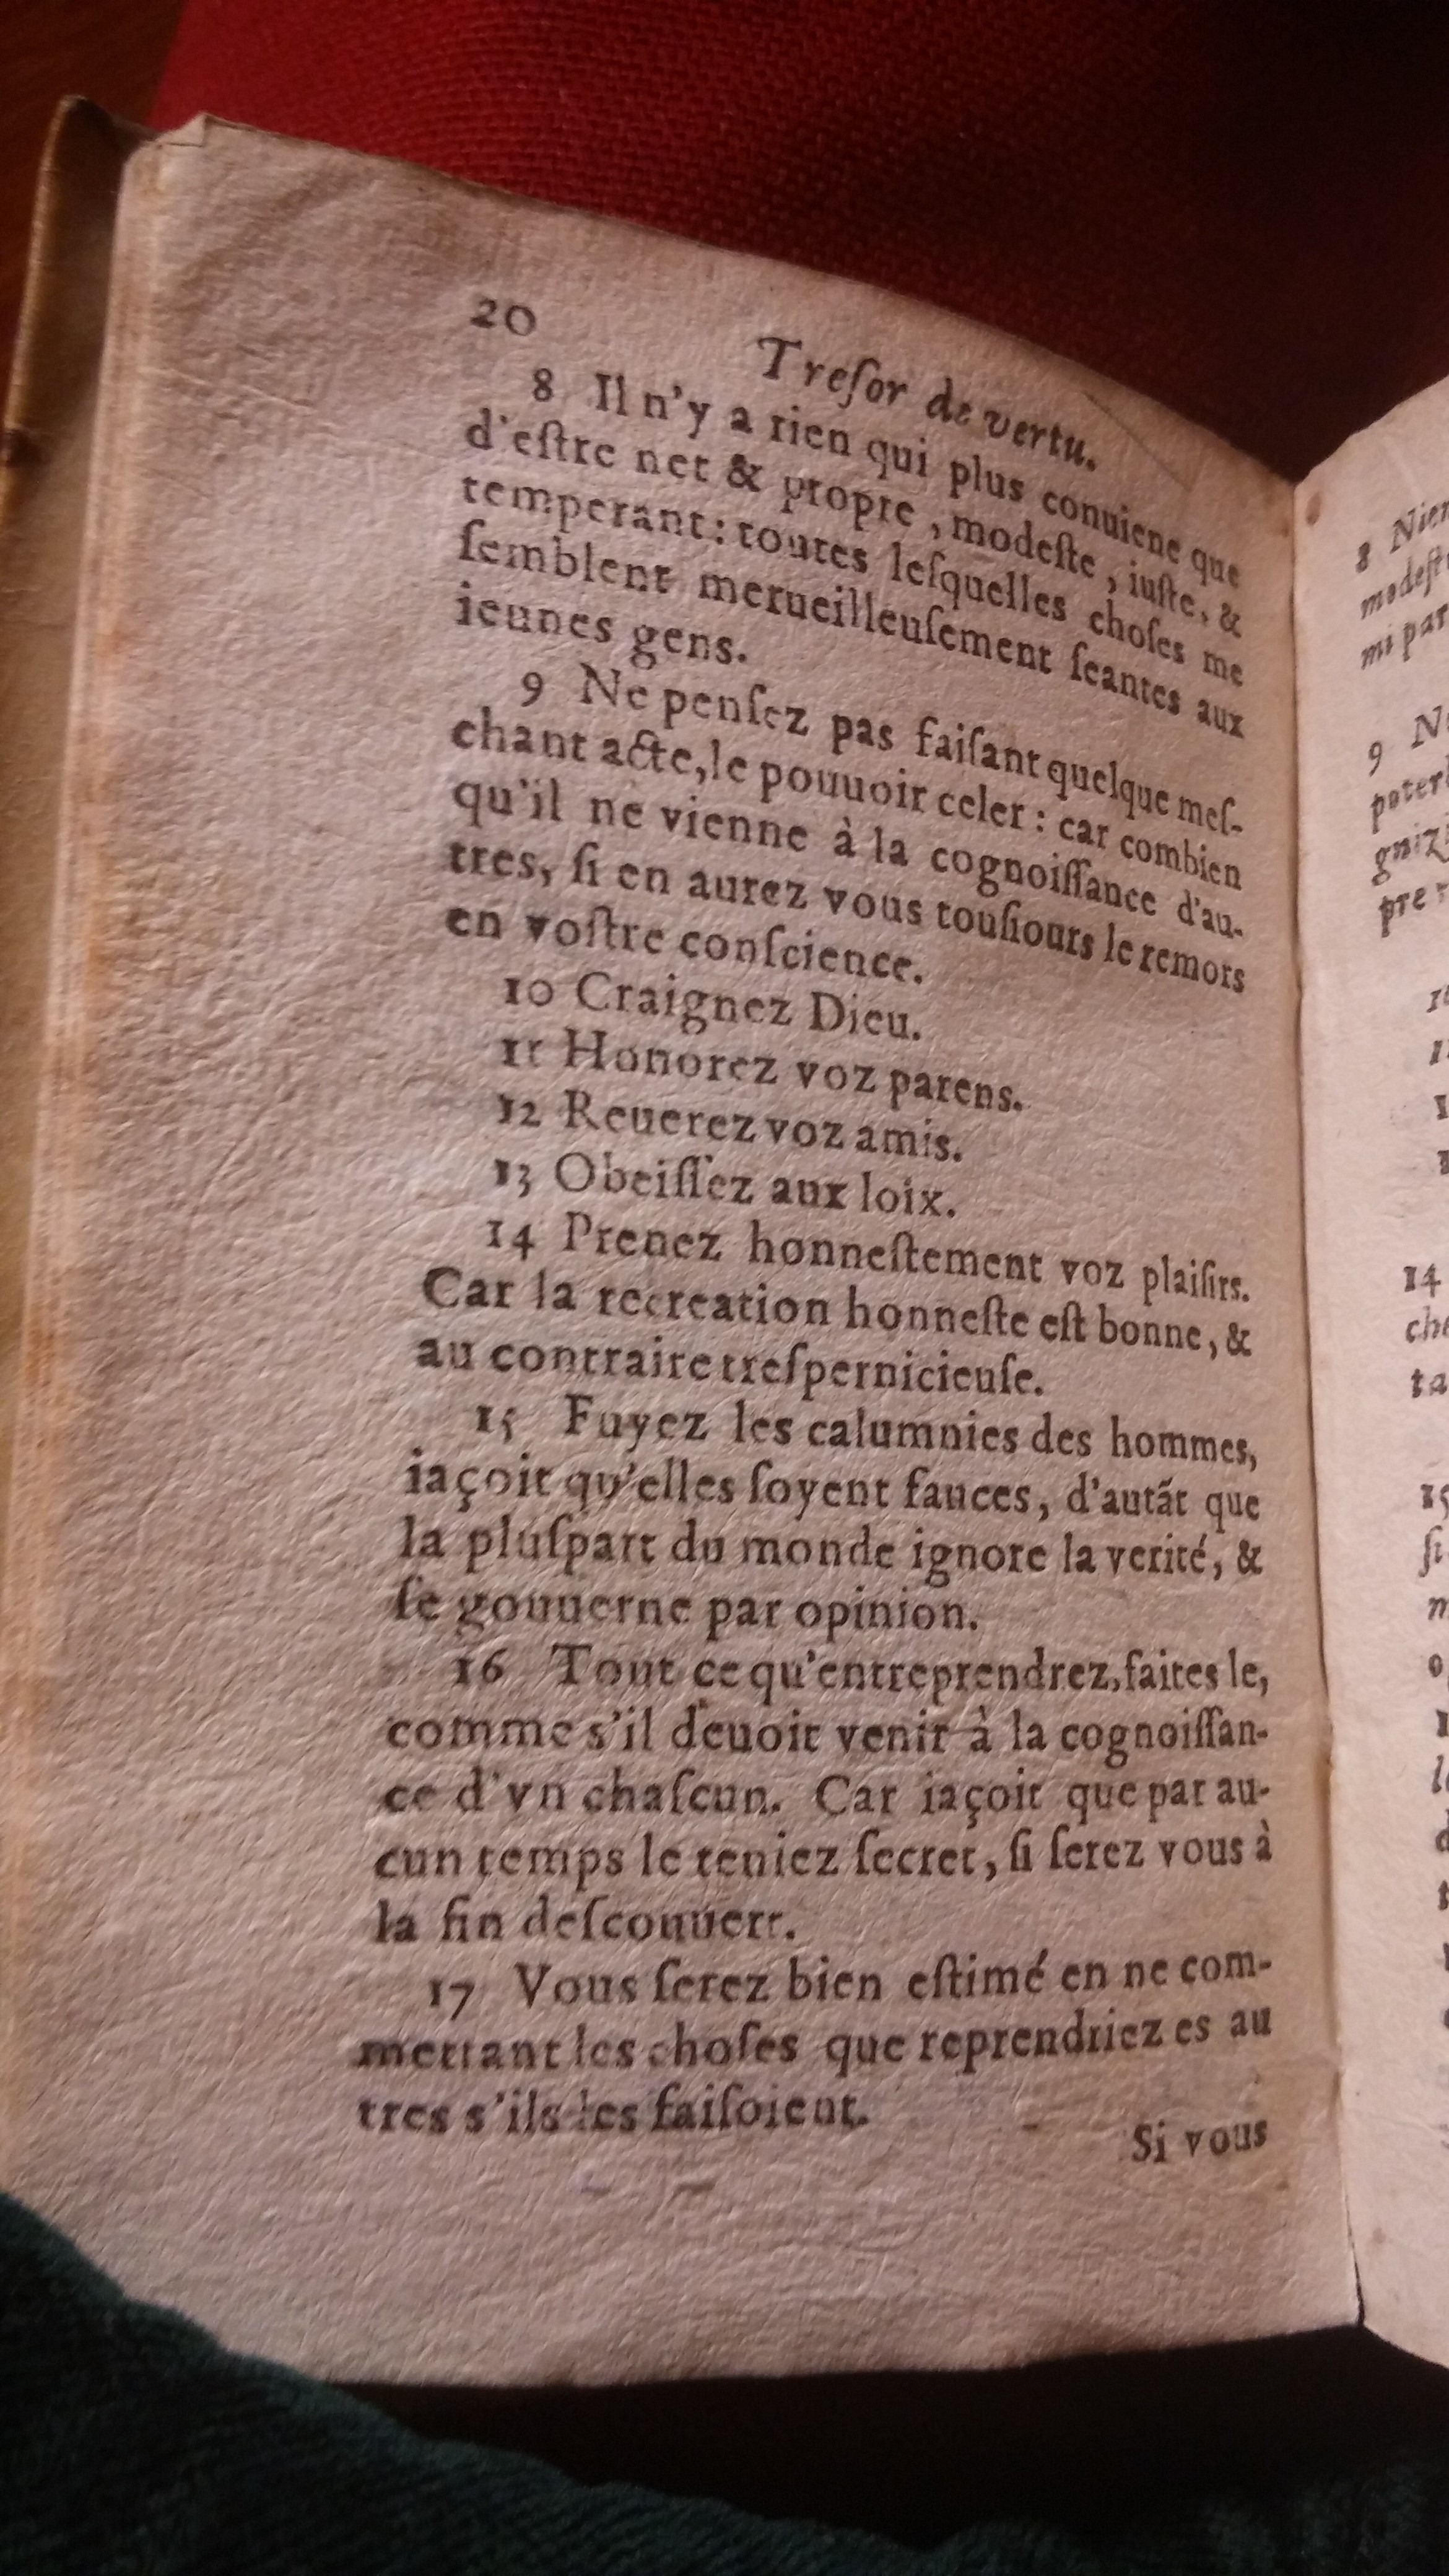 20
Treſor de vertu.
8 Il n'y a rien qui plus conuiene que
d'eſtre net & propre, modeſte, iuſte, &
temperant: toutes leſquelles choſes me
ſemblent merueilleuſement ſeantes aux
ieunes gens.
9 Ne penſez pas faiſant quelque meſ-
chant acte, le pouuoir celer: car combien
qu'il ne vienne à la cognoiſſance d'au-
tres, ſi en aurez vous touſiours le remors
en voſtre conſcience.
10 Craignez Dieu.
11 Honorez voz parens.
12 Reuerez voz amis.
13 Obeiſſez aux loix.
14 Prenez honneſtement voz plaiſirs.
Car la recreation honneſte eſt bonne, &
au contraire treſpernicieuſe.
15 Fuyez les calumnies des hommes,
iaçoit qu'elles ſoyent fauces, d'autãt que
la pluſpart du monde ignore la verité, &
ſe gouuerne par opinion.
16 Tout ce qu'entreprendrez, faites le,
comme s'il deuoit venir à la cognoiſſan-
ce d'vn chaſcun. Car iaçoit que par au-
cun temps le teniez ſecret, ſi ſerez vous à
la fin deſcouuert.
17 Vous ſerez bien eſtimé en ne com-
mettant les choſes que reprendriez es au
tres s'ils les faiſoient.
Si vous
8
9
14